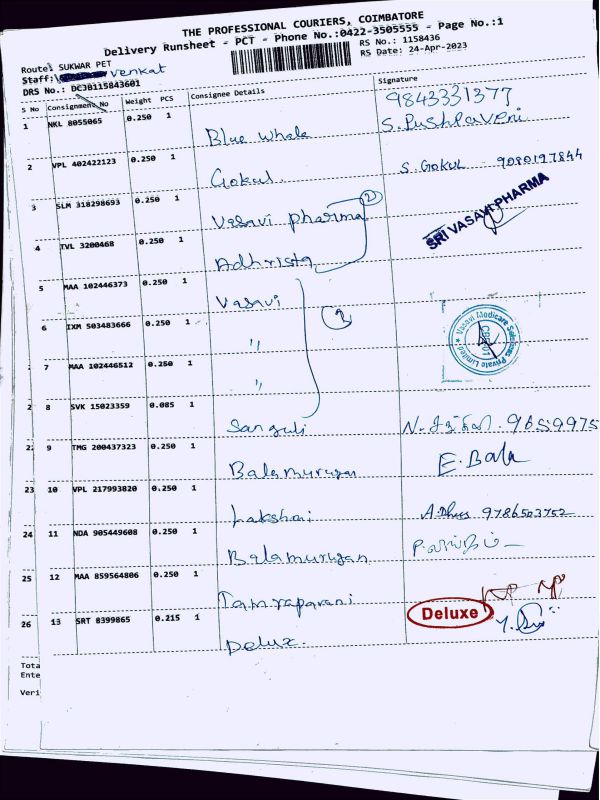 THE PROFESSIONAL COURIERS, COIMBATORE
Delivery Runsheet - PCT - Phone No.:0422-3505555 - Page No.:1
Route: SUKWAR PET
RS No.: 1158436
Staff: venkat
RS Date: 24-Apr-2023
DRS No.: DCJB115843601
S No Consignment No Weight PCS Consignee Details Signature
1 NKL 8055065 0.250 1 Blue Whale 9843331377
S. Pushpaveni
2 VPL 402422123 0.250 1 Gokul. S. Gokul - 9080197844
3 SLM 318298693 0.250 1 Vasavi pharma 2 SRI VASAVI PHARMA
4 TVL 3200468 0.250 1 Adhrista
5 MAA 102446373 0.250 1 Vasavi
6 IXM 503483666 0.250 1 "
Vasavi Medicare Solutions Private Limited
7 MAA 102446512 0.250 1 "
2 8 SVK 15023359 0.085 1 Sanguli 9659975
22 9 TMG 200437323 0.250 1 Balamurugan E. Bala
23 10 VPL 217993820 0.250 1 Lakshai 9786503752
24 11 NDA 905449608 0.250 1 Balamurugan
25 12 MAA 859564806 0.250 1 Tamraparani
26 13 SRT 8399865 0.215 1 Delux. Deluxe
Tota
Ente
Veri